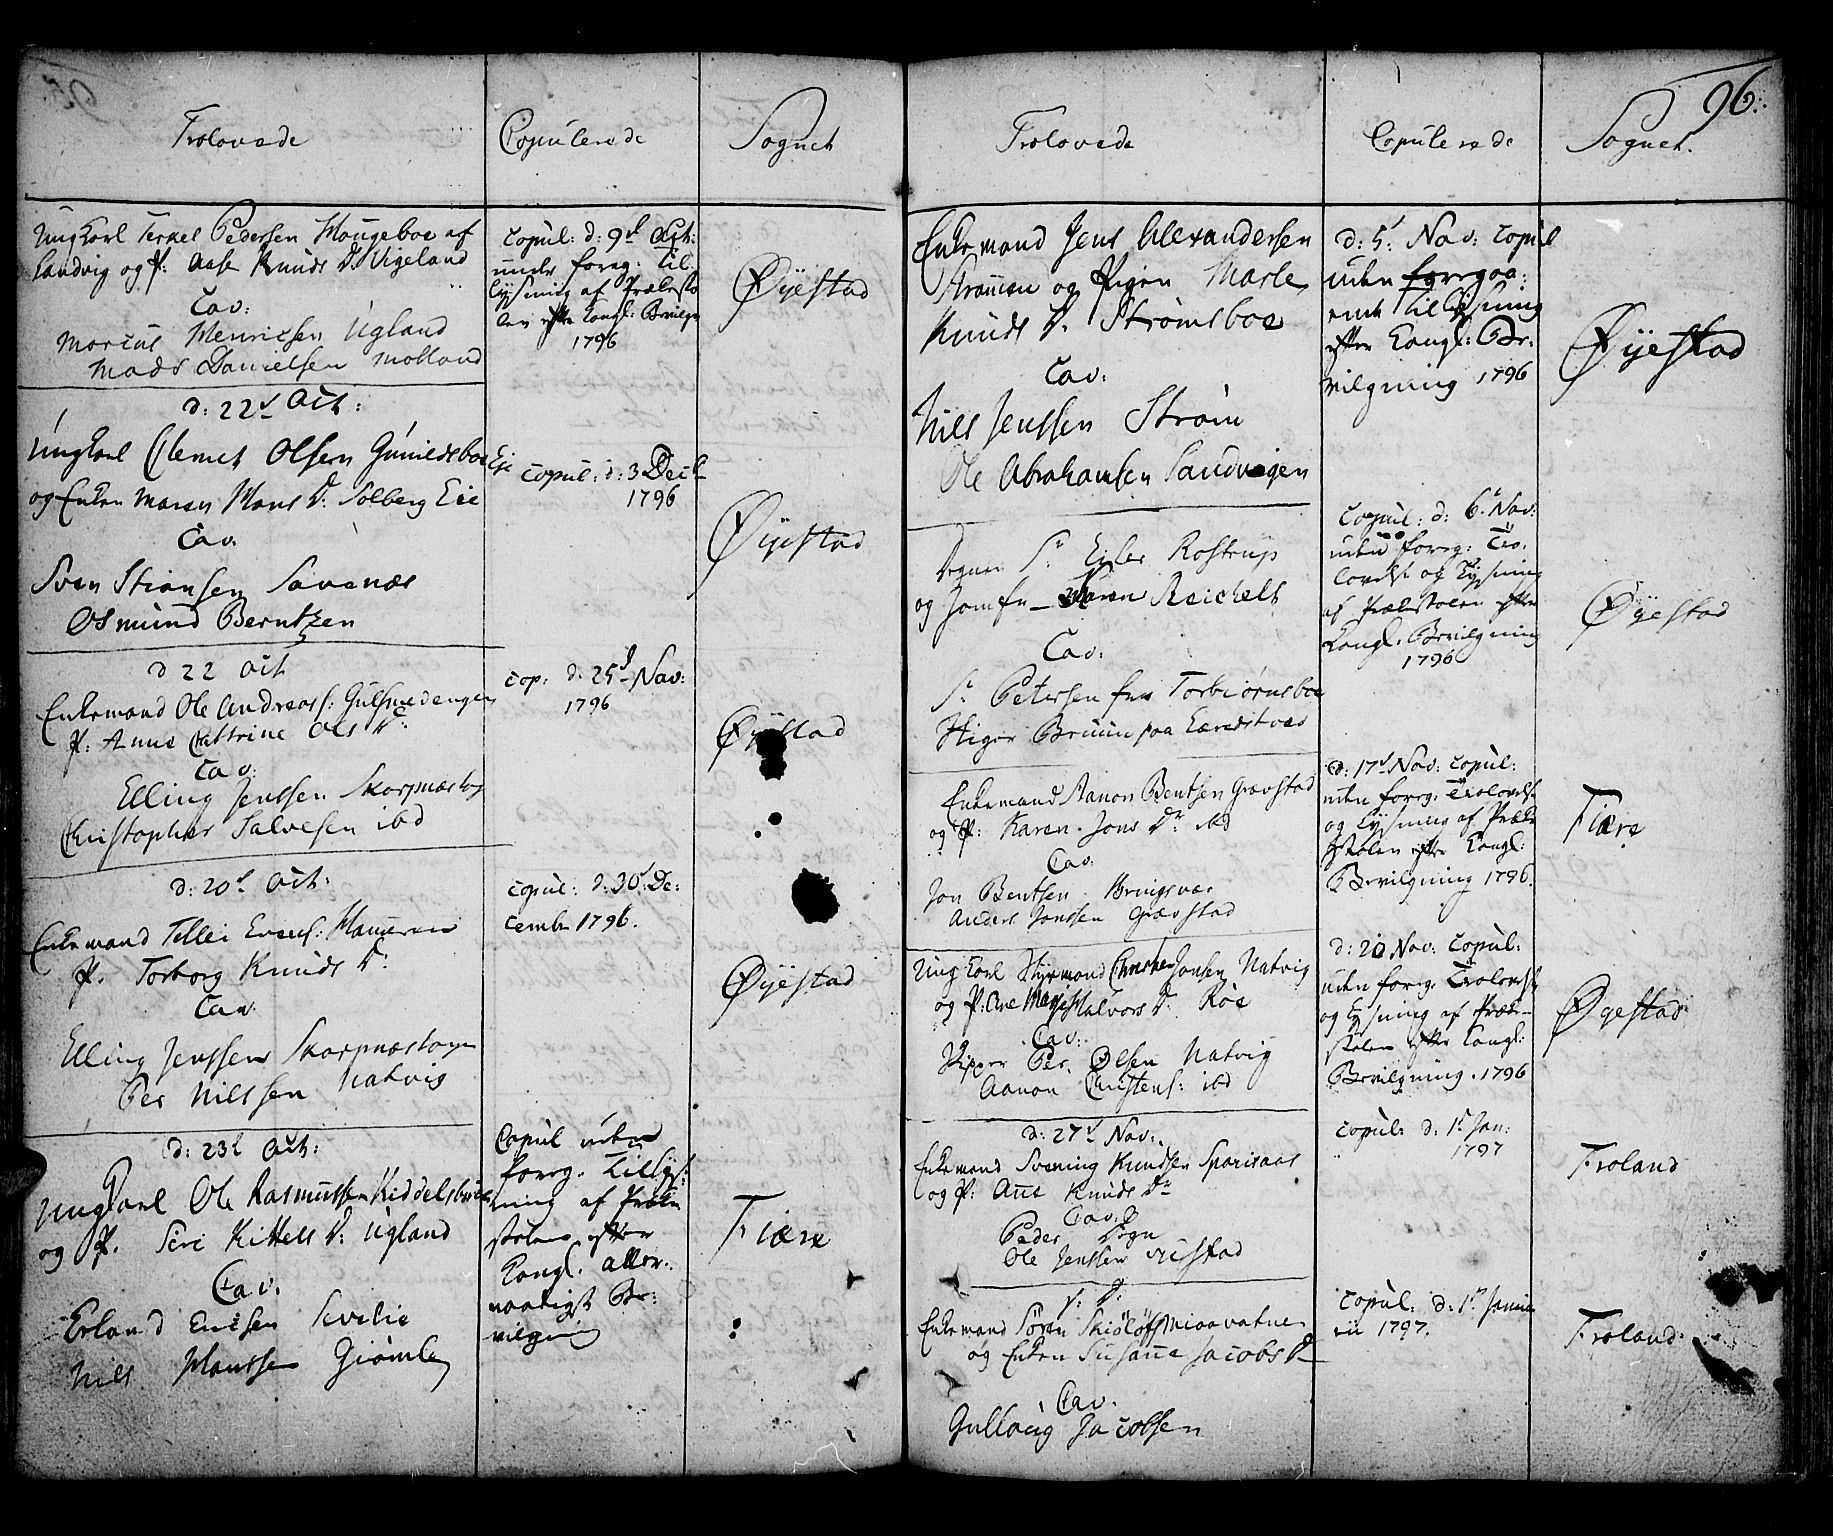 Trolovede
Copulerede
Sognet
Ungkarl Terkel Pedersen Hougeboe af
Landvig og P: Aase Knuds D. Vigeland
Cav:
Marcus Henricsen Ugland
Mads Danielsen Molland
Copul: d: 9d Oct:
uden foreg: Til
lysning af Prækesto
len efter Kongl: Bevilgn
1796
Øyestad
d: 22d Oct:
Ungkarl Clemet Olsen Gunildsboe Eje
og Enken Maren Hans D: Solberg Eie
Cav.
Sven Stiansen Savenæs
Osmund Berntzen
Copul: d: 3 Decb
1796
Øyestad
d 22 Oct
Enkemand Ole Andreass: Gulsmedengen
P: Anne Cathrine Ols D:
Cav:
Elling Jenssen Skarpnæstog
Christopher Salvesen ibd
Cop: d: 25d Nov:
1796
Øyestad
d: 20d Oct:
Enkemand Tellei Evens:
P. Torborg Knuds D:
Cav.
Elling Jenssen Skarpnæstogen
Per Nilssen Natvig
Copul: d: 30d De:
cembr 1796.
Øyestad
d: 23d Oct:
Ungkarl Ole Rasmussen Kiddelsbue
og P. Siri Kittels D: Ugland
Cav.
Erland Ericsen Sevelie
Nils Hanssen Giømle
Copul uden
foreg. Tillys
ning af Præke
stolen efter
Kongl. aller:
naadigst Be:
vilgning
Fiære
96.
Trolovede
Copulerede
Sognet.
Enkemand Jens Alexandersen
Strømen og Pigen Marte
Knuds D. Strømsboe
Cav:
Nils Jenssen Strøm
Ole Abrahamsen Sandvigen
d: 5d Nov: Copul
uden foregaa:
ende Tillysning
efter Kongl: Be:
vilgning 1796
Øyestad
Degnen Sr Eiler Rostrup
og Jomfru Maren Reichelt
Cav:
Sr Petersen fra Torbiørnsboe
Stiger Bruun paa Lærestvæd
Copul: d: 6d Nov:
uden foreg: Tro
lovelse og Lysning
af Prækestolen efter
Kongl. Bevilgning
1796
Øyestad
Enkemand Aanon Bentsen Grævstad
og P: Karen Jons Dr ibd
Cav:
Jon Bentsen Bringsvær
Anders Jonssen Grævstad
d: 17d Nov: Copul:
uden foreg: Trolovelse
og Lysning af Præke
stolen efter Kongl:
Bevilgning 1796.
Fiære
Ungkarl Styrmand Christen Jonsen Natvig
og P: Ane Marie Halvors D. Röe
Cav:
Skipper Per Olsen Natvig
Aanon Christens: ibd
d: 20 Nov: Copul:
uden foreg: Trolovelse
og Lysning af Præke
stolen efter Kongl:
Bevilgning. 1796
Øyestad
d: 27d Nov:
Enkemand Svening Knudsen Sparsaas
og P: Anne Knuds Dr
Cav:
Peder Degn
Ole Jenssen Rustad
Copul: d: 1d Jan:
1797
Froland
s: D:
Enkemand Søren Skiøløfs Miaavatne
og Enken Susanne Jacobs D
Cav.
Gullaug Jacobsen
Copul: d: 1d Janua
rii 1797.
Froland